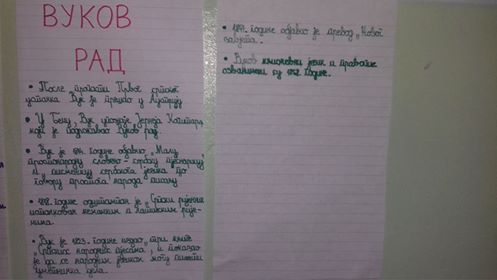 ВУКОВ
РАД
• После пропасти Првог српског
устанка Вук је прешао у Аустрију
• У Бечу, Вук упознаје Јернеја Копитара,
који је подржавао Вуков рад.
• Вук је 1814. године објавио „Малу
простонародну славено-сербску пјеснарицу
и „писменицу сербскога језика по
говору простога народа писану
• 1818. године одштампан је „Српски рјечник
истолкован њемачким и латинским рије-
чма.
• Вук је 1823. године издао три књиге
„Српских народних пјесама", и показао
је да се народним језиком могу писати
уметничка дела.
• 1847. године објавио је превод „Новог
завјета".
• Вуков књижевни језик и правопис
озваничени су 1868. године.